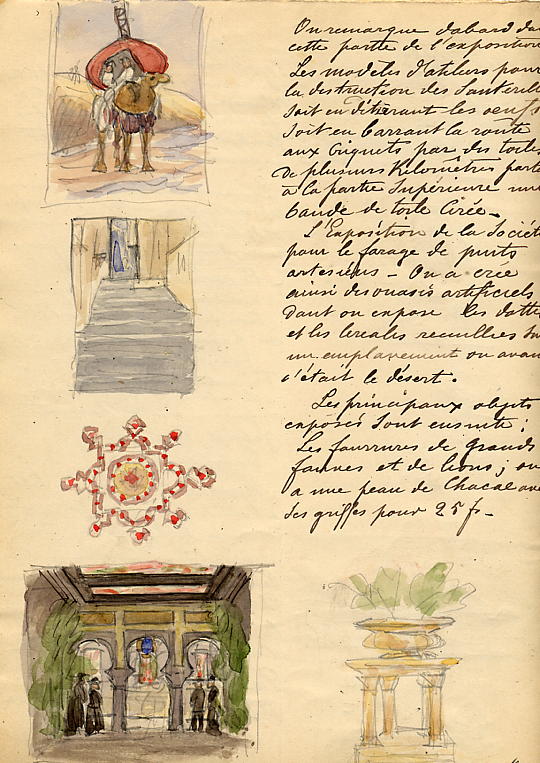 On remarque dabord da
cette partie de l'exposition
Les modèles d'atliers pour
la destruction des Sauterell
Soit en détérant les oeufs
Soit en barrant la route
aux Criquets par des toiles
De plusieurs Kilomètres parta
à la partie Supérieure une
bande de toile Cirée_
L'Exposition de la Sociét
pour le forage de puits
artesiens _ On a crée
ainsi des ouasis artificiels
Dont on expose les datte
et les Cereales recueillies su
un emplacement ou avan
c'était le désert.
Les principaux objets
exposés Sont ensuite :
Les fourrures de Grands
fauves et de lions ; on
a une peau de Chacal ave
Ses griffes pour 25 f_